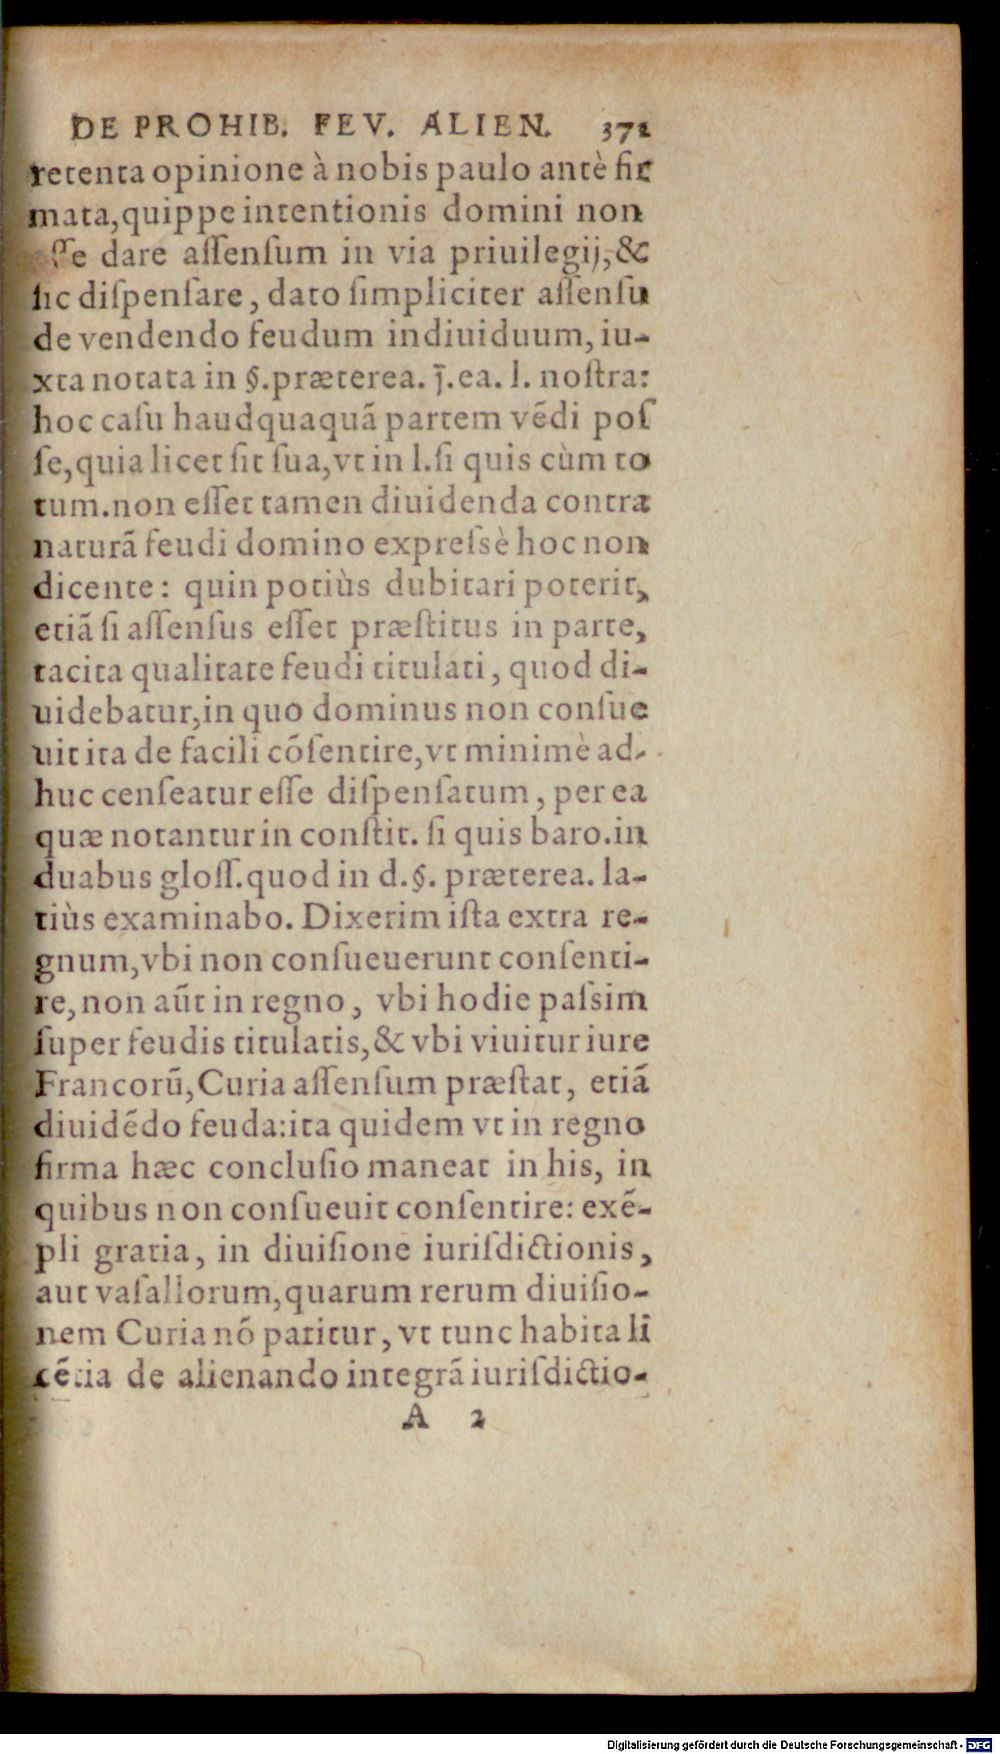 DE PROHIB. FEV. ALIEN. 371
retenta opinione à nobis paulo antè fir
mata,quippe intentionis domini non
eſſe dare aſſenſum in via priuilegij,&
ſic diſpenſare, dato ſimpliciter aſſenſu
de vendendo feudum indiuiduum, iu-
xta notata in §.præterea. j̄.ea. l. noſtra:
hoc caſu haudquaquã partem vẽdi poſ
ſe,quia licet ſit ſua,vt in l.ſi quis cùm to
tum.non eſſet tamen diuidenda contra
naturã feudi domino expreſsè hoc non
dicente: quin potiùs dubitari poterit,
etiã ſi aſſenſus eſſet præſtitus in parte,
tacita qualitate feudi titulati, quod di-
uidebatur,in quo dominus non conſue
uit ita de facili cõſentire,vt minimè ad-
huc cenſeatur eſſe diſpenſatum, per ea
quæ notantur in conſtit. ſi quis baro.in
duabus gloſſ.quod in d.§. præterea. la-
tiùs examinabo. Dixerim iſta extra re-
gnum,vbi non conſueuerunt conſenti-
re, non aũt in regno, vbi hodie paſsim
ſuper feudis titulatis,& vbi viuitur iure
Francorũ, Curia aſſenſum præſtat, etiã
diuidẽdo feuda:ita quidem vt in regno
firma hæc concluſio maneat in his, in
quibus non conſueuit conſentire: exẽ-
pli gratia, in diuiſione iuriſdictionis,
aut vaſallorum,quarum rerum diuiſio-
nem Curia nõ patitur, vt tunc habita li
cẽtia de alienando integrã iuriſdictio-
A 2
Digitalisierung gefördert durch die Deutsche Forschungsgemeinschaft - DFG